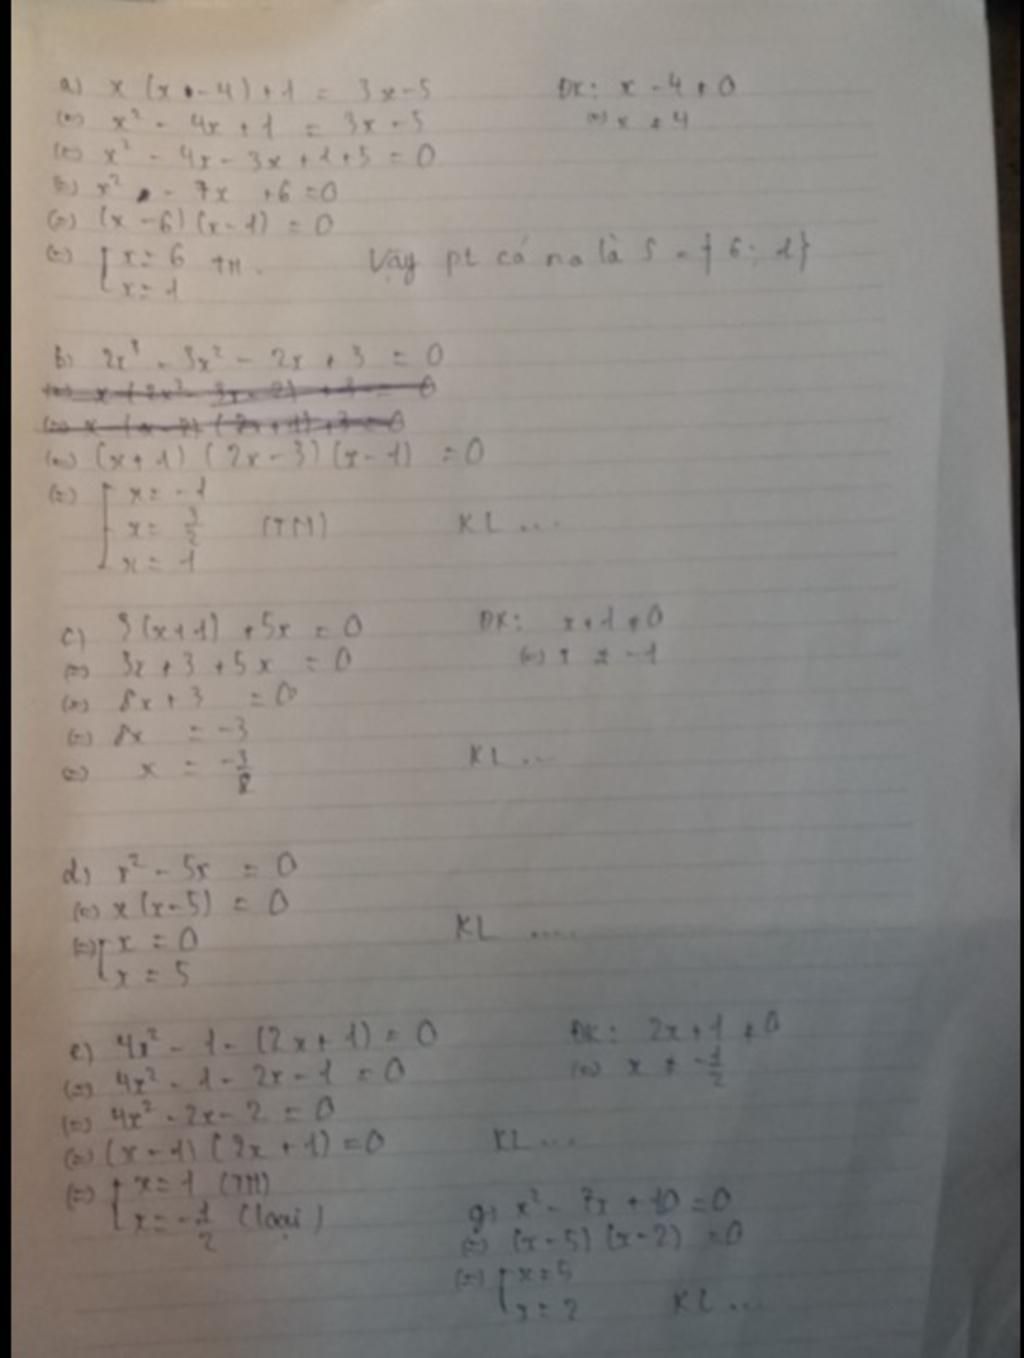 a) x (x - 4) + 1 = 3x - 5 ĐK: x - 4 ≠ 0
(=) x² - 4x + 1 = 3x - 5 (=) x ≠ 4
(=) x² - 4x - 3x + 1 + 5 = 0
(=) x² - 7x + 6 = 0
(=) (x - 6) (x - 1) = 0
(=) [ x = 6 TM. Vậy pt có no là S = { 6 ; 1 }
x = 1
b) 2x³ - 3x² - 2x + 3 = 0
(=) (x + 1) (2x - 3) (x - 1) = 0
(=) [ x = -1
x = 3/2 (TM) KL ...
x = 1
c) 3(x+1) + 5x = 0 ĐK: x + 1 ≠ 0
(=) 3x + 3 + 5x = 0 (=) x ≠ -1
(=) 8x + 3 = 0
(=) 8x = -3
(=) x = -3/8 KL ...
d) x² - 5x = 0
(=) x (x - 5) = 0
(=) [ x = 0 KL ....
x = 5
e) 4x² - 1 - (2x + 1) = 0 ĐK: 2x + 1 ≠ 0
(=) 4x² - 1 - 2x - 1 = 0 (=) x ≠ -1/2
(=) 4x² - 2x - 2 = 0
(=) (x - 1) (2x + 1) = 0 KL ...
(=) [ x = 1 (TM)
x = -1/2 (loại)
g) x² - 7x + 10 = 0
(=) (x - 5) (x - 2) = 0
(=) [ x = 5
x = 2 KL ...